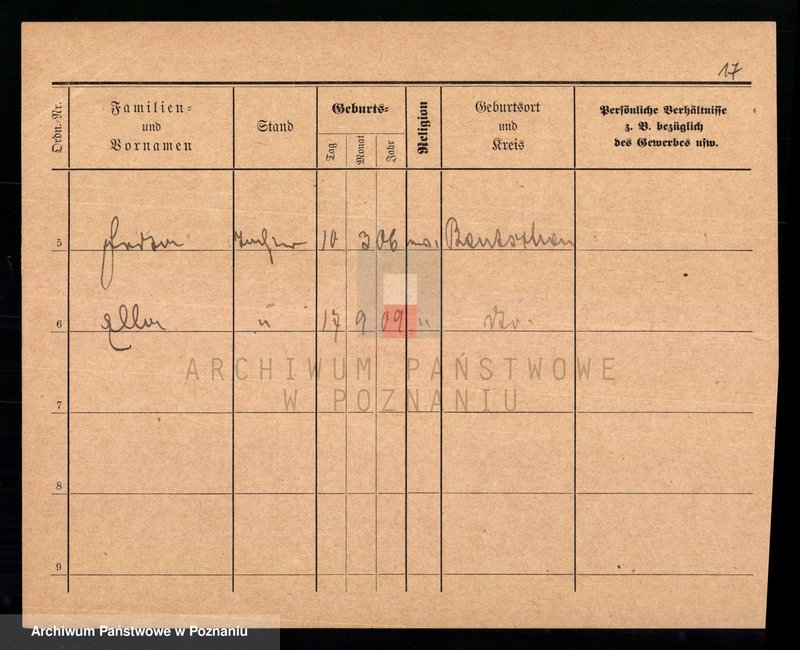 17
Ordn.-Nr.
Familien=
und
Vornamen
Stand
Geburts=
Tag
Monat
Jahr
Religion
Geburtsort
und
Kreis
Persönliche Verhältnisse
z. B. bezüglich
des Gewerbes usw.
5 10 3 06 Bentschen
6 Ella " 17 9 09 " do.
7
8
9
ARCHIWUM PAŃSTWOWE
W POZNANIU
Archiwum Państwowe w Poznaniu